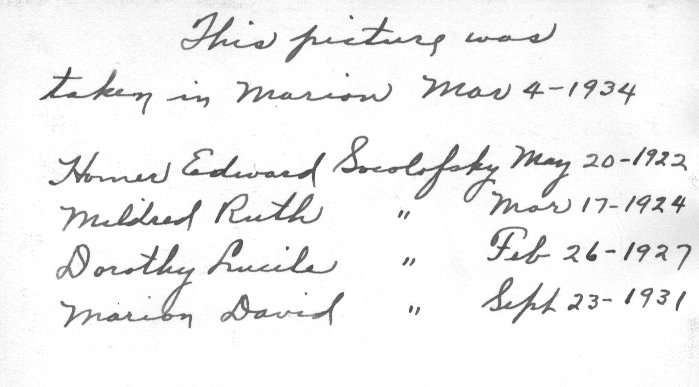 This picture was
taken in Marion Mar 4-1934
Homer Edward Socolofsky May 20-1922
Mildred Ruth " Mar 17-1924
Dorothy Lucile " Feb 26-1927
Marion David " Sept 23-1931